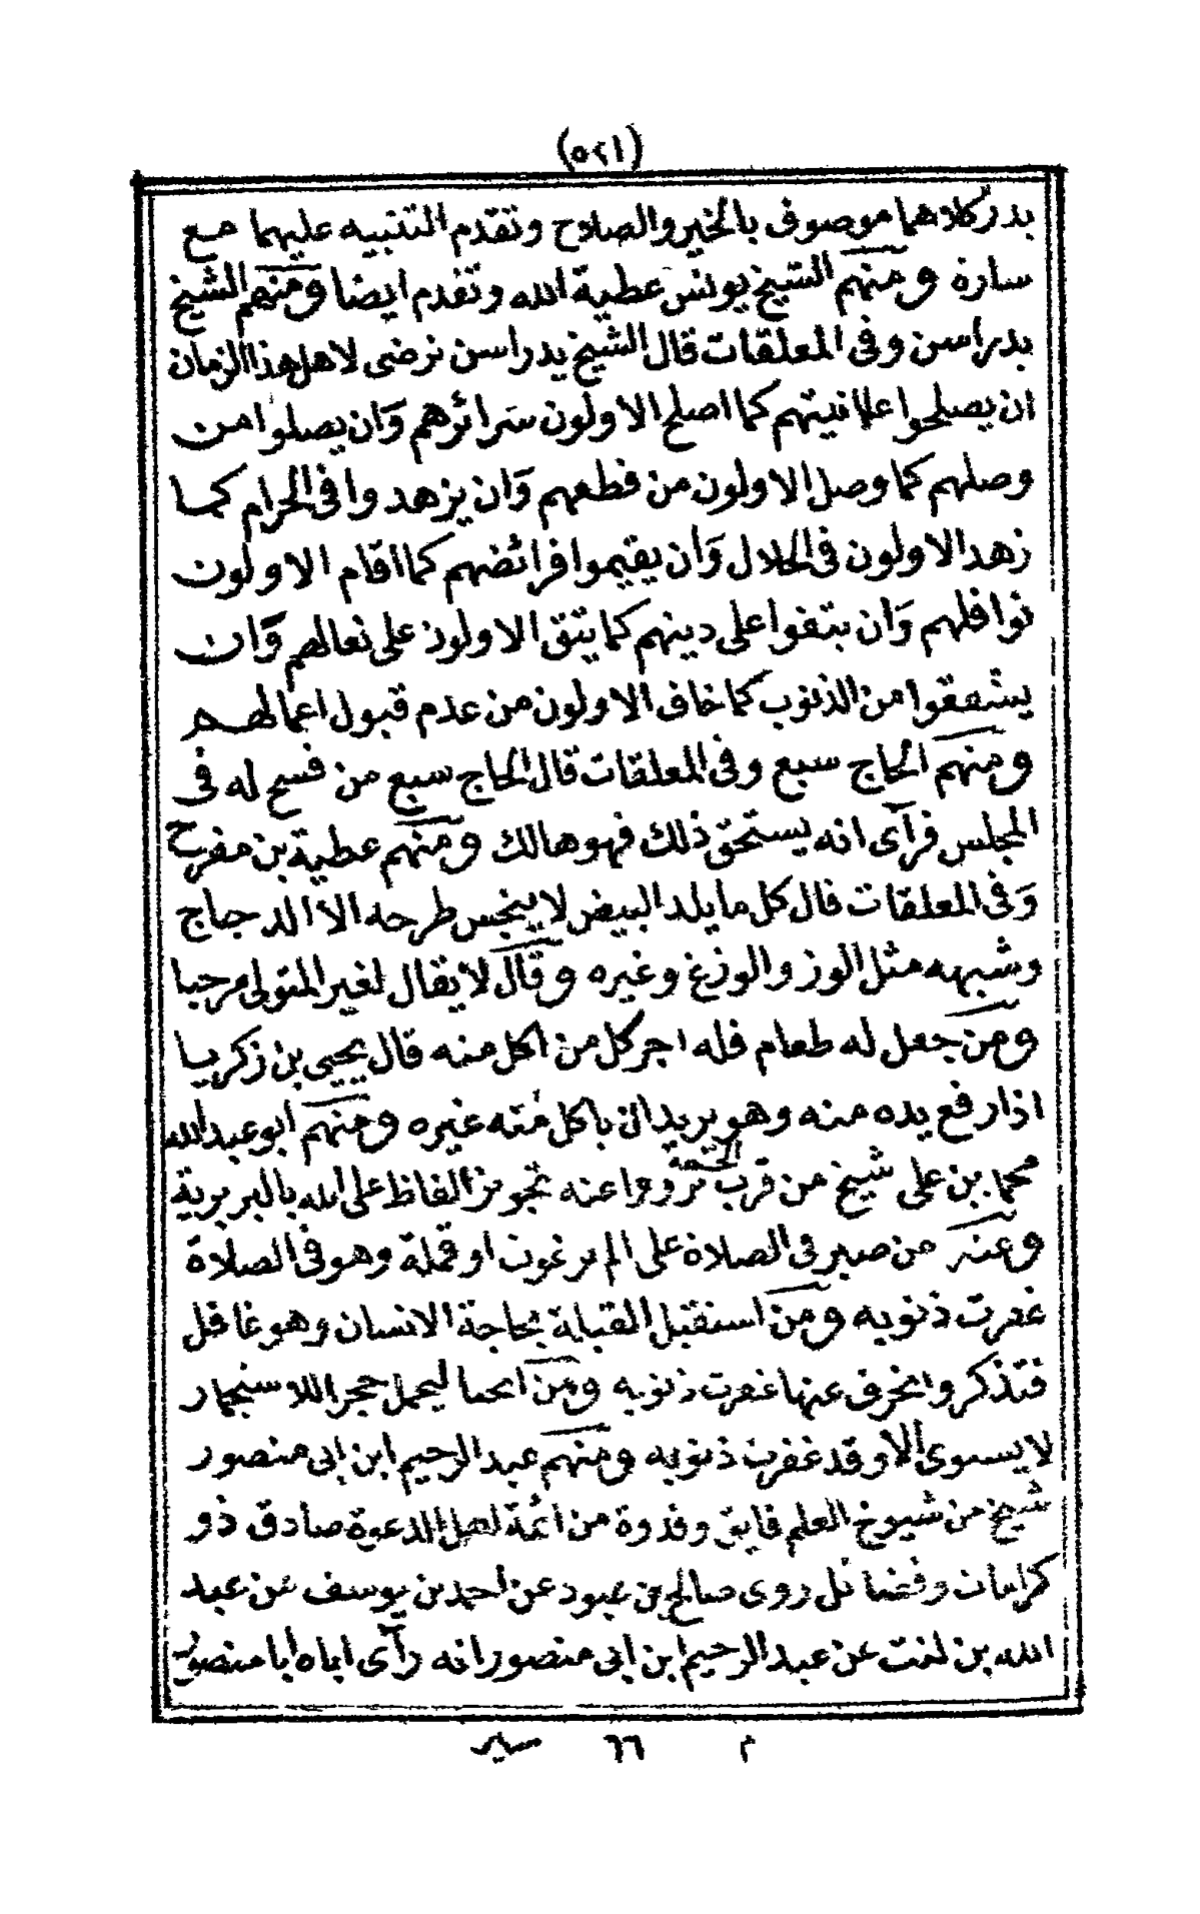 (٥٢١)
بدر كلاهما موصوف بالخير والصلاح وتقدم التنبيه عليهما مع
سارة ومنهم الشيخ يونس عطية الله وتقدم ايضا ومنهم الشيخ
يدراسن وفى المعلقات قال الشيخ يدراسن نرضى لاهل هذا الزمان
ان يصلحوا علانيتهم كما اصلح الاولون سرائرهم وان يصلوا من
وصلهم كما وصل الاولون من قطعهم وان يزهدوا فى الحرام كما
زهد الاولون فى الحلال وان يقيموا فرائضهم كما اقام الاولون
نوافلهم وان يتقوا على دينهم كما يتق الاولون على نعالهم وان
يشفقوا من الذنوب كما خاف الاولون من عدم قبول اعمالهم
ومنهم الحاج سبع وفى المعلقات قال الحاج سبع من فسح له فى
المجلس فرآى انه يستحق ذلك فهو هالك ومنهم عطية بن مفرح
وفى المعلقات قال كل ما يلد البيض لا ينجس طرحه الا الدجاج
وشبهه مثل الوز والوزغ وغيره وقال لا يقال لغير المتولى مرحبا
ومن جعل له طعام فله اجر كل من اكل منه قال يحيى بن زكريا
اذا رفع يده منه وهو يريد ان ياكل منه غيره ومنهم ابو عبد الله
محمد بن على شيخ من قرب الختمة رووا عنه تجويز الفاظ على الله بالبربرية
وعنه من صبر فى الصلاة على الم برغوث او قملة وهو فى الصلاة
غفرت ذنوبه ومن استقبل القبلة بحاجة الانسان وهو غافل
فتذكر وانحرف عنها غفرت ذنوبه ومن انحنا ليحمل حجر اللاستجمار
لا يستوى الا وقد غفرت ذنوبه ومنهم عبد الرحيم ابن ابى منصور
شيخ من شيوخ العلم فايق وقدوة من ائمة اهل الدعوة صادق ذو
كرامات وفضائل روى صالح بن عبود عن احمد بن يوسف عن عبد
الله بن لنت عن عبد الرحيم ابن ابى منصور انه رآى اباه ابا منصور
م ٦٦ سير